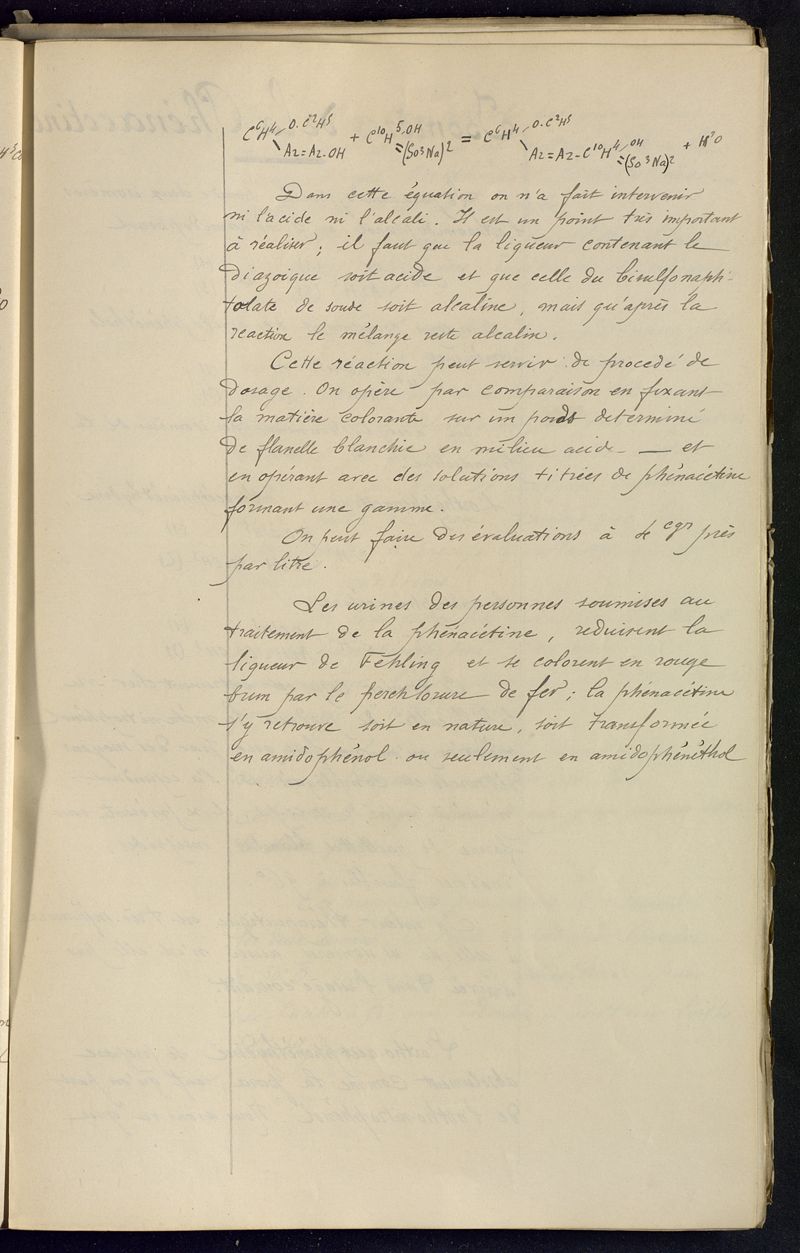 C⁶H⁴ O.C²H⁵ + C¹⁰H⁵.OH = C⁶H⁴ O.C²H⁵
Az=Az-OH =(So³Na)² Az=Az-C¹⁰H⁴.OH =(So³Na)² + H²O
Dans cette équation on n'a fait intervenir
ni l'acide ni l'alcali. Il est un point très important
à réaliser; il faut que la liqueur contenant le
diazoique soit acide et que celle du bisulfonaph-
tolate de soude soit alcaline, mais qu'après la
reaction le mélange reste alcalin.
Cette réaction peut servir de procedé de
dosage. On opère par comparaison en fixant
la matière colorante sur un poids determiné
de flanelle blanchie en milieu acide - — et
en opérant avec des solutions titrées de phénacétine
formant une gamme.
On peut faire des évaluations à 4 cgr près
par litre.
Les urines des personnes soumises au
traitement de la phénacétine, reduisent la
liqueur de Fehling et se colorent en rouge
brun par le perchlorure de fer; la phénacétine
s'y retrouve soit en nature, soit transformée
en amidophénol. ou seulement en amidophénéthol